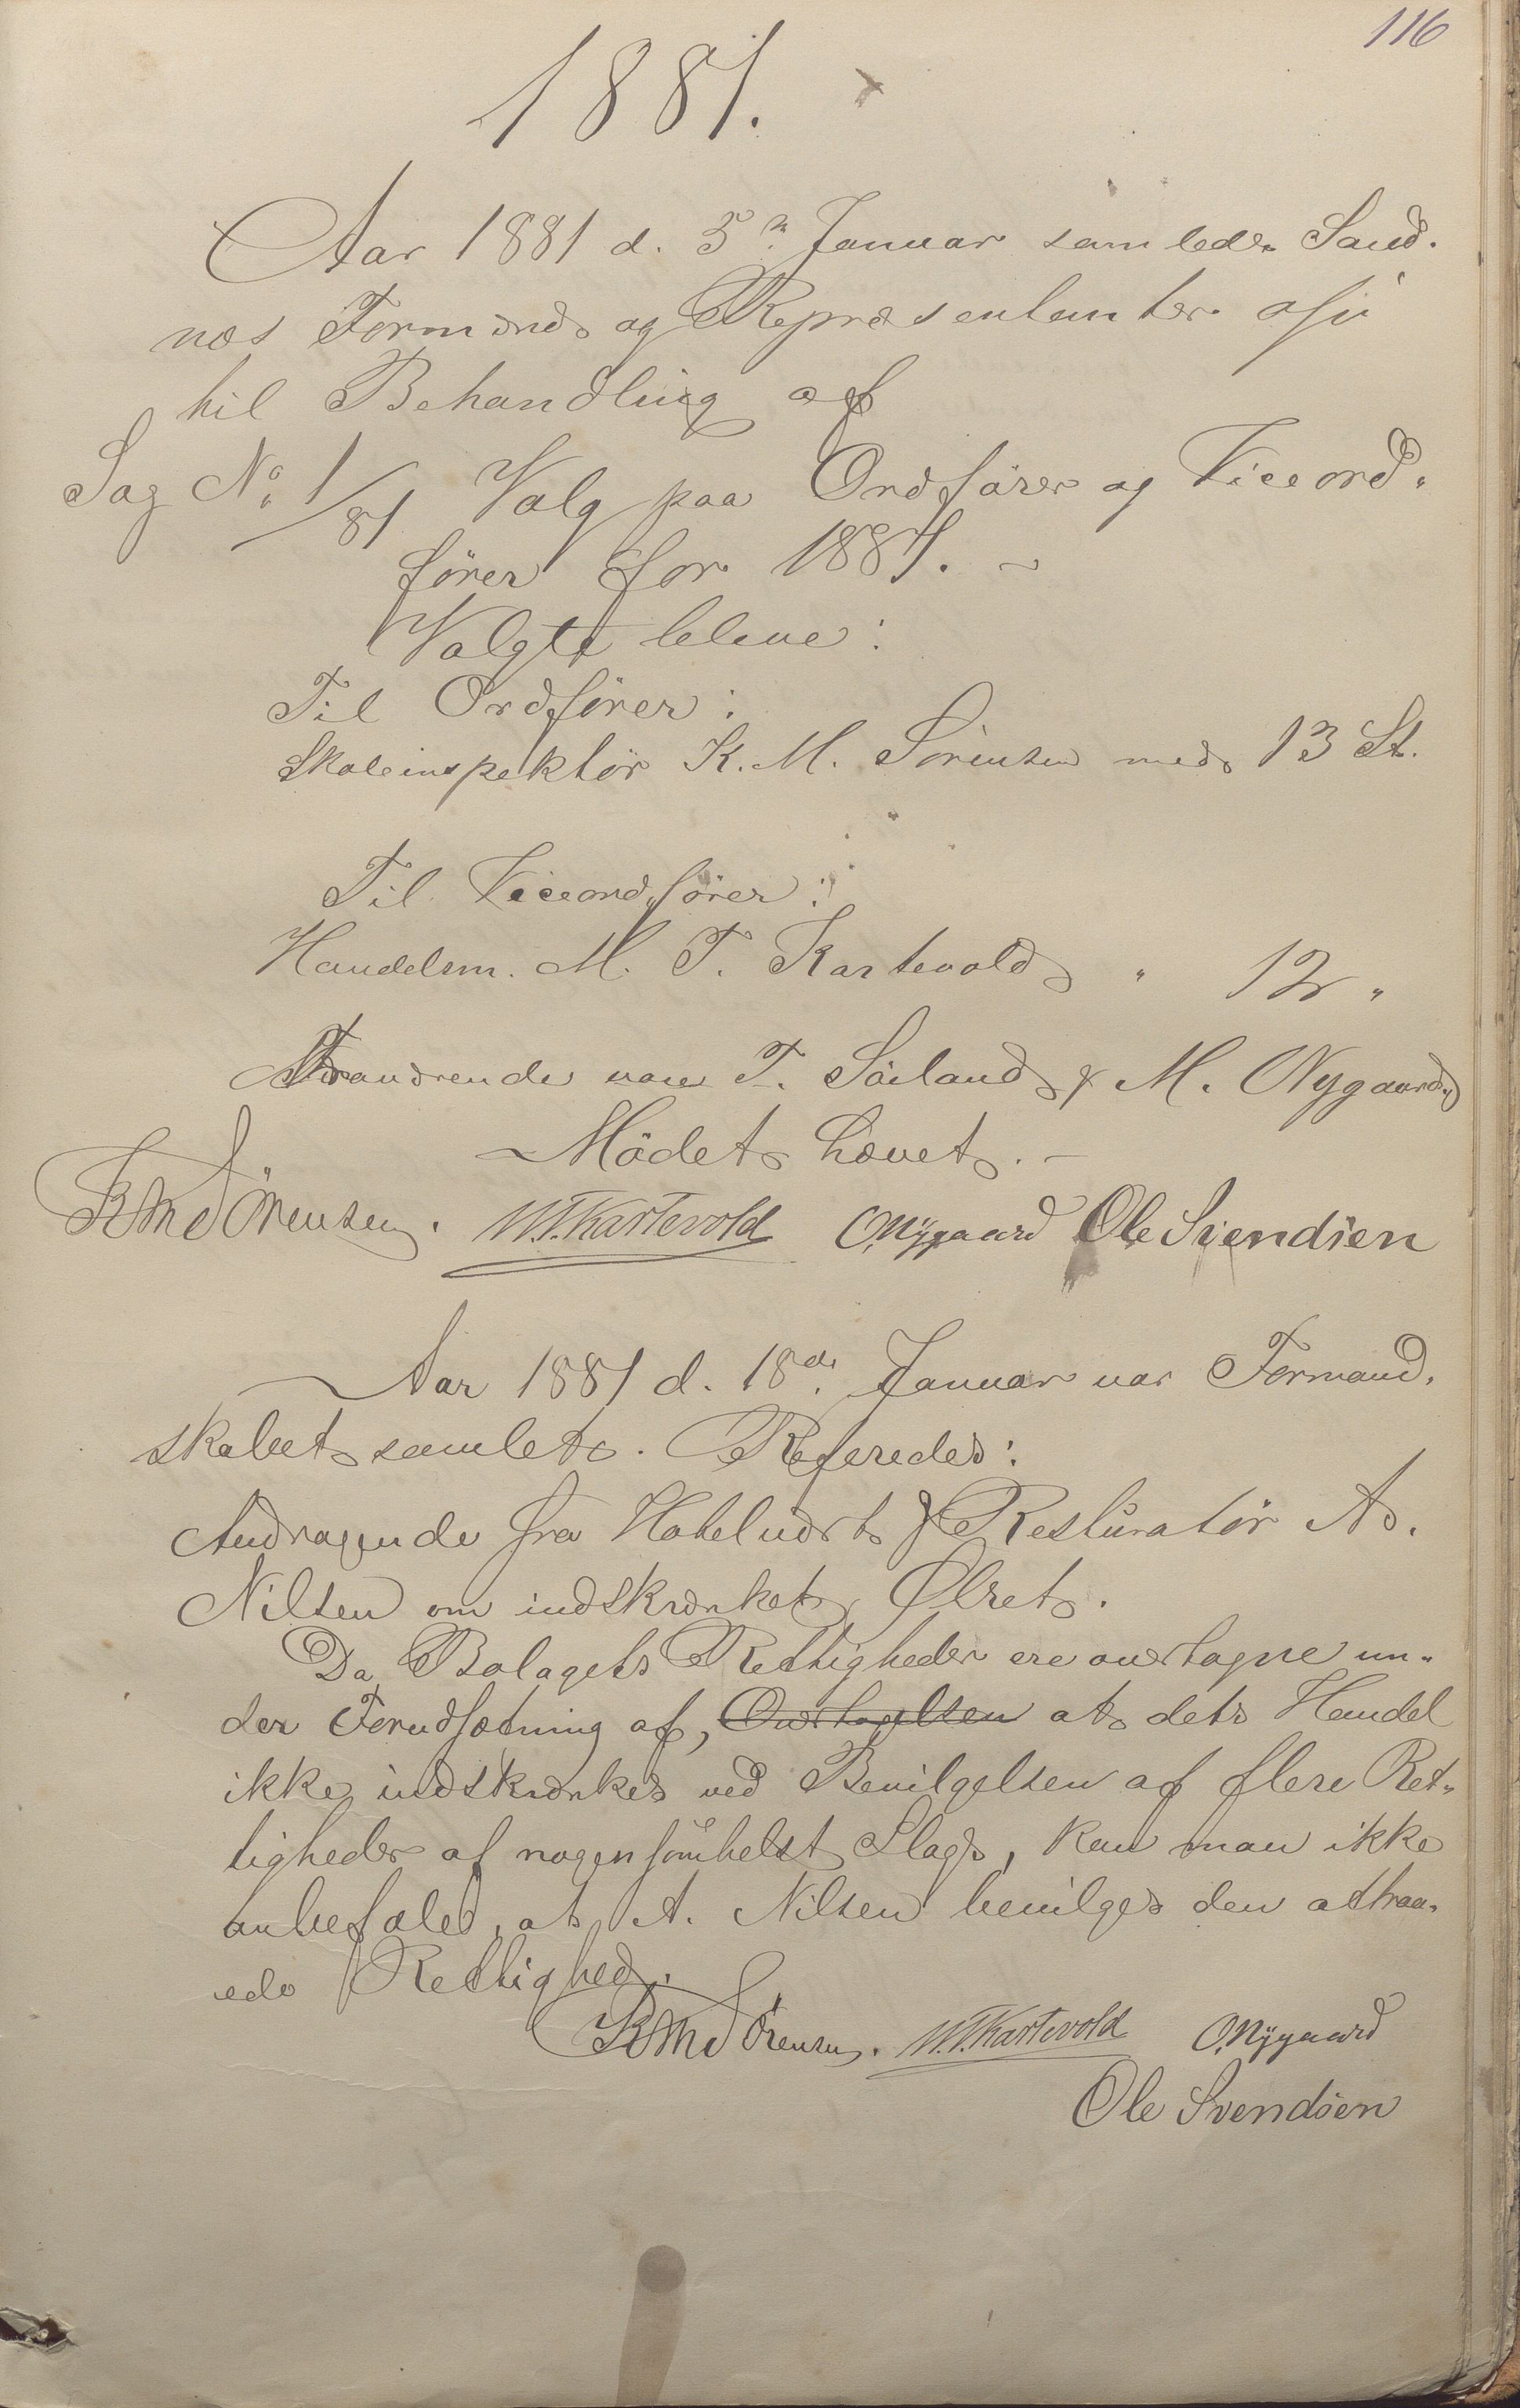 116
1881.
Aar 1881 d. 5te Januar samledes Sand-
næs Formænd og Repræsentanter
til Behandling af
Sag No. 1/81 Valg paa Ordfører og Viceord-
fører for 1881. –
Valgte bleve:
Til Ordfører:
Skoleinspektør K. M. Sørensen med 13 St.
Til Viceordfører:
Handelsm. M. T. Kartevold " 12 "
Fraværende vare T. Søiland & M. Nygaard
Mødet hævet. –
KMSörensen. M.T.Kartevold O.Nÿgaard Ole Svendsen
Aar 1881 d. 18de Januar var Formand-
skabet samlet. Refereredes:
Andragende fra Hotelvært & Resturatør As.
Nilsen om indskrænket Ølret.
Da Bolagets Rettigheder ere overtagne un-
der Forudsætning af, Overtagelsen at dets Handel
ikke indskrænkes ved Bevilgelsen af flere Ret-
tigheder af nogensomhelst Slags, kan man ikke
anbefale, at A. Nilsen bevilges den attraa-
ede Rettighed.
KMSörensen. M.T.Kartevold O.Nÿgaard
Ole Svendsen